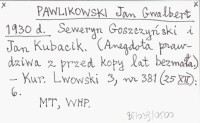 PAWLIKOWSKI Jan Gwalbert
1930 d. Seweryn Goszczyński i
Jan Kubacik. (Anegdota praw-
dziwa z przed kopy lat bezmała)
– Kur. Lwowski 3, nr 381 (25 XII):
6.
MT, WHP.